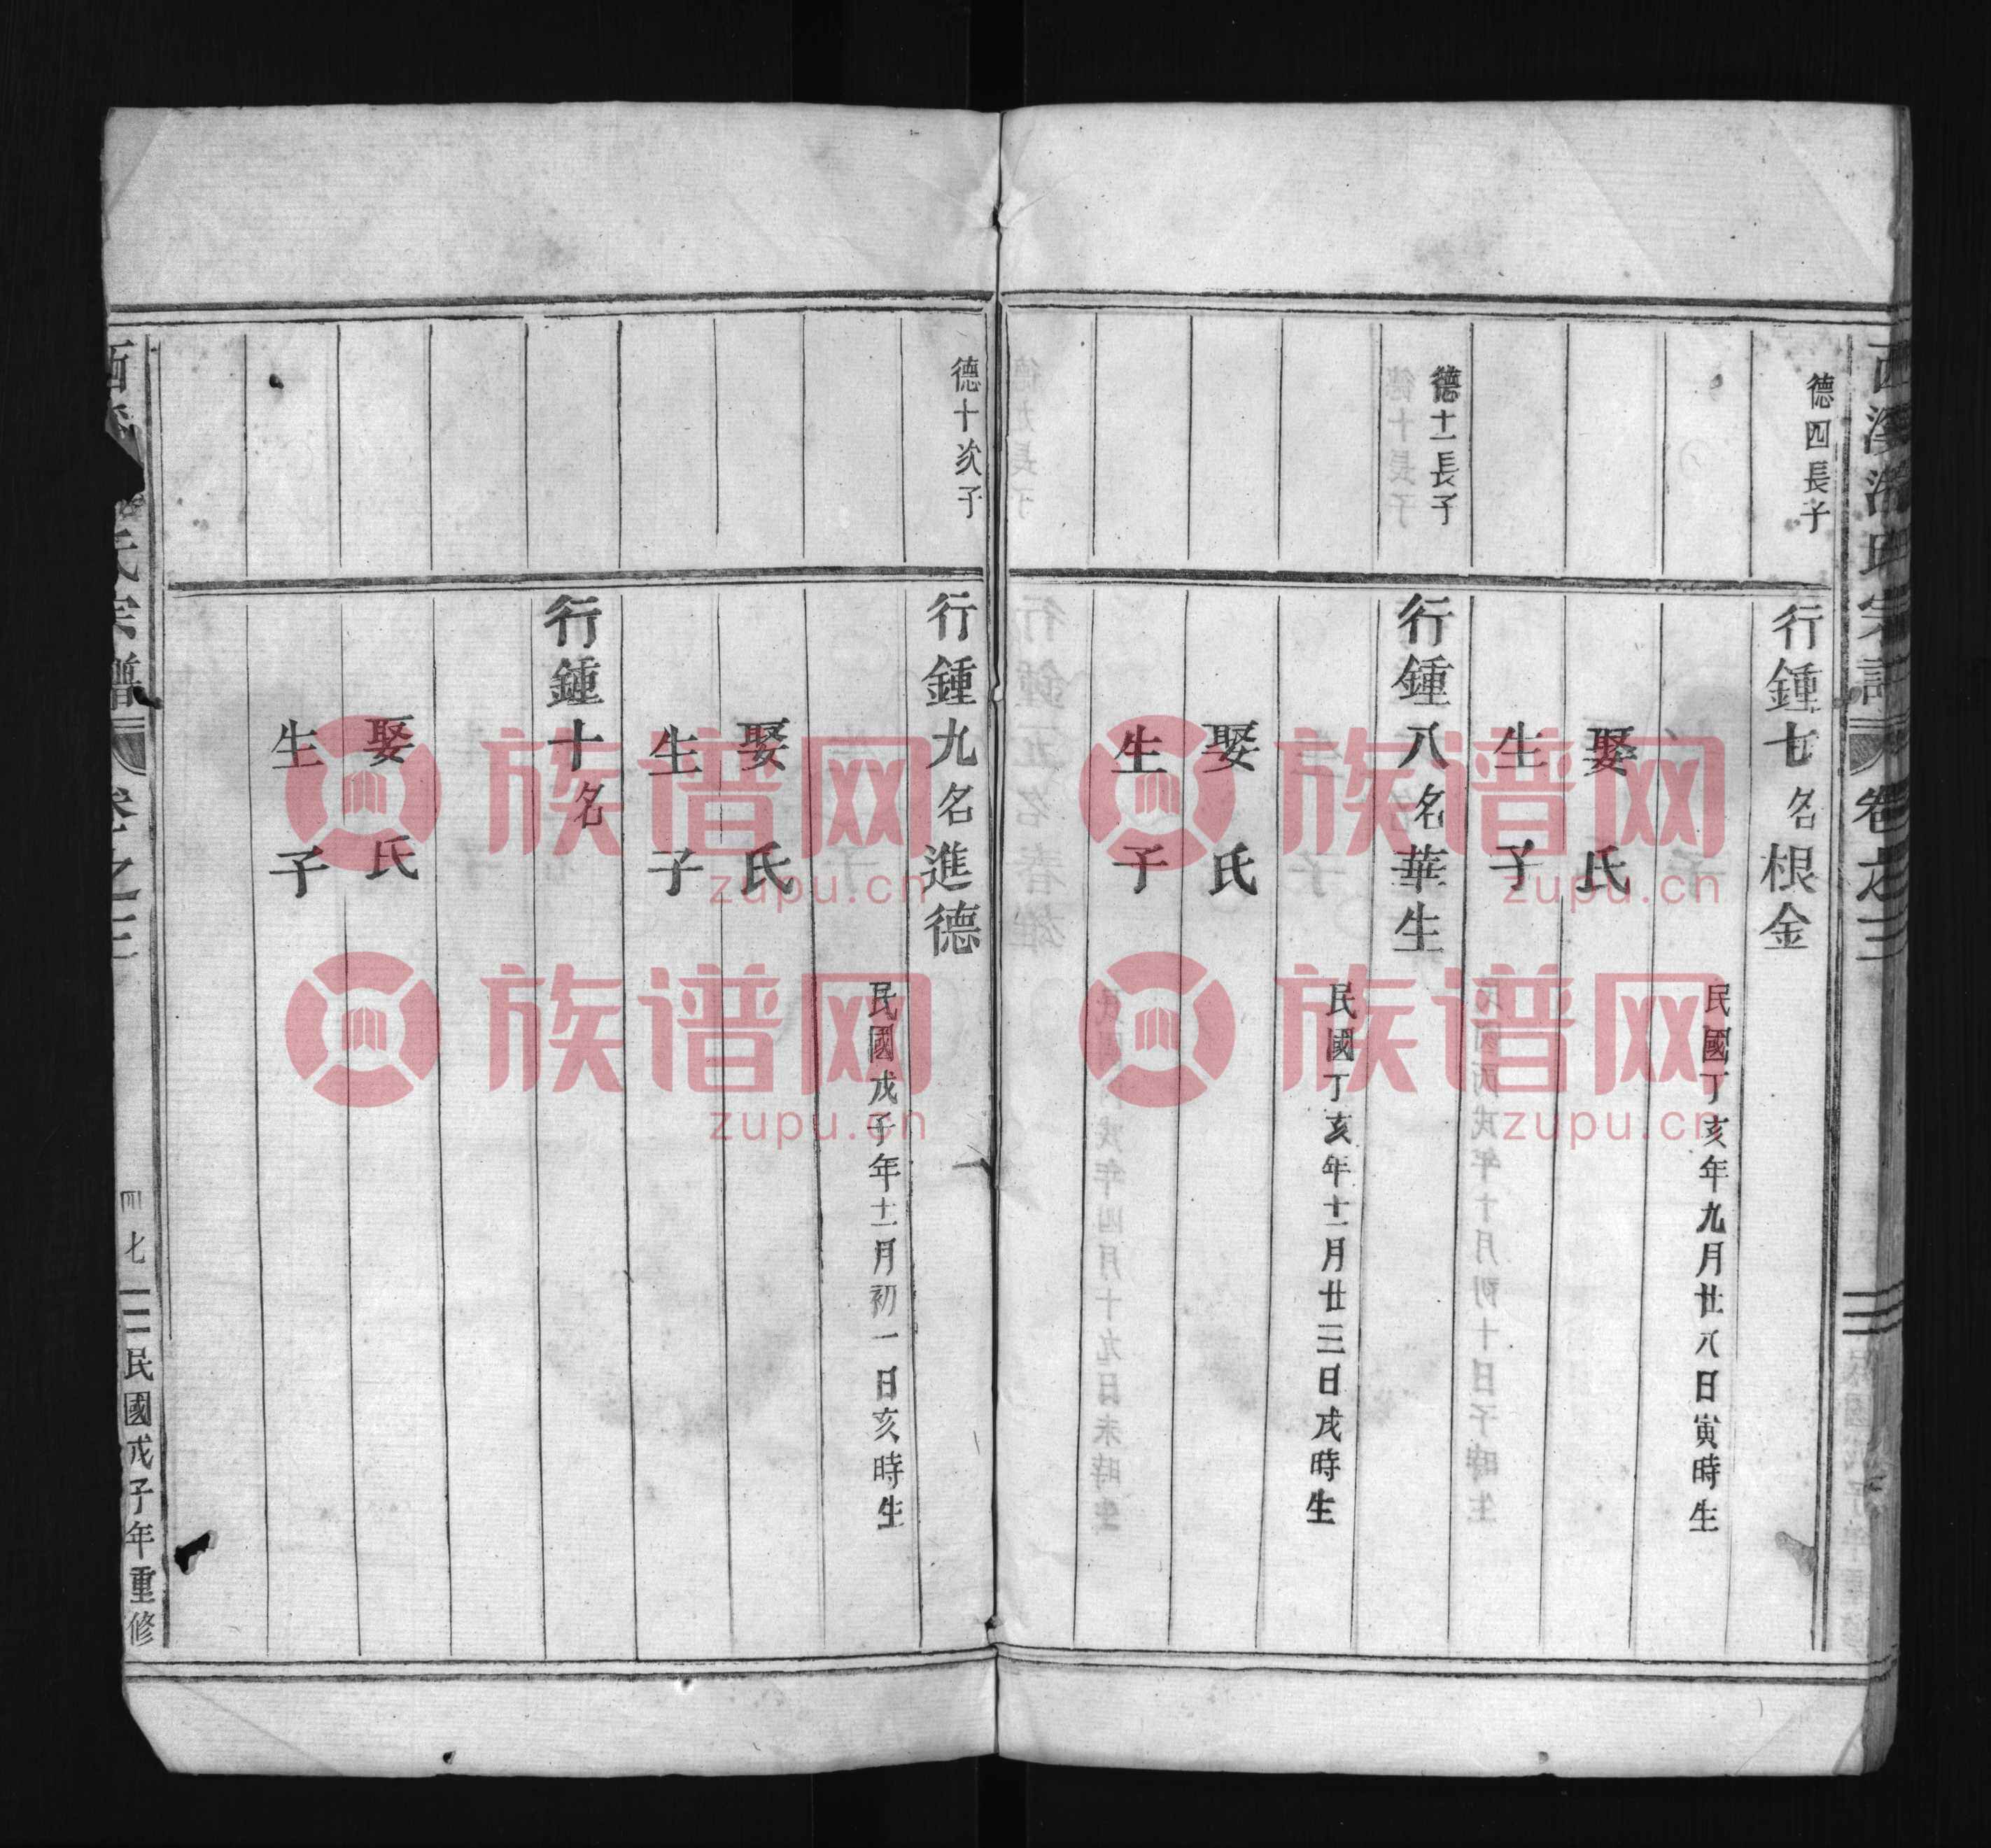 德四長子
行鍾七名根金
民國丁亥年九月廿八日寅時生
娶 氏
生 子
德十一長子
行鍾八名華生
民國丁亥年十一月廿三日戌時生
娶 氏
生 子
德十次子
行鍾九名進德
民國戊子年十一月初一日亥時生
娶 氏
生 子
行鍾十名
娶 氏
生 子
氏宗譜
卷之三
四七
民國戊子年重修
族谱网
zupu.cn
族谱网
zupu.cn
族谱网
zupu.cn
族谱网
zupu.cn